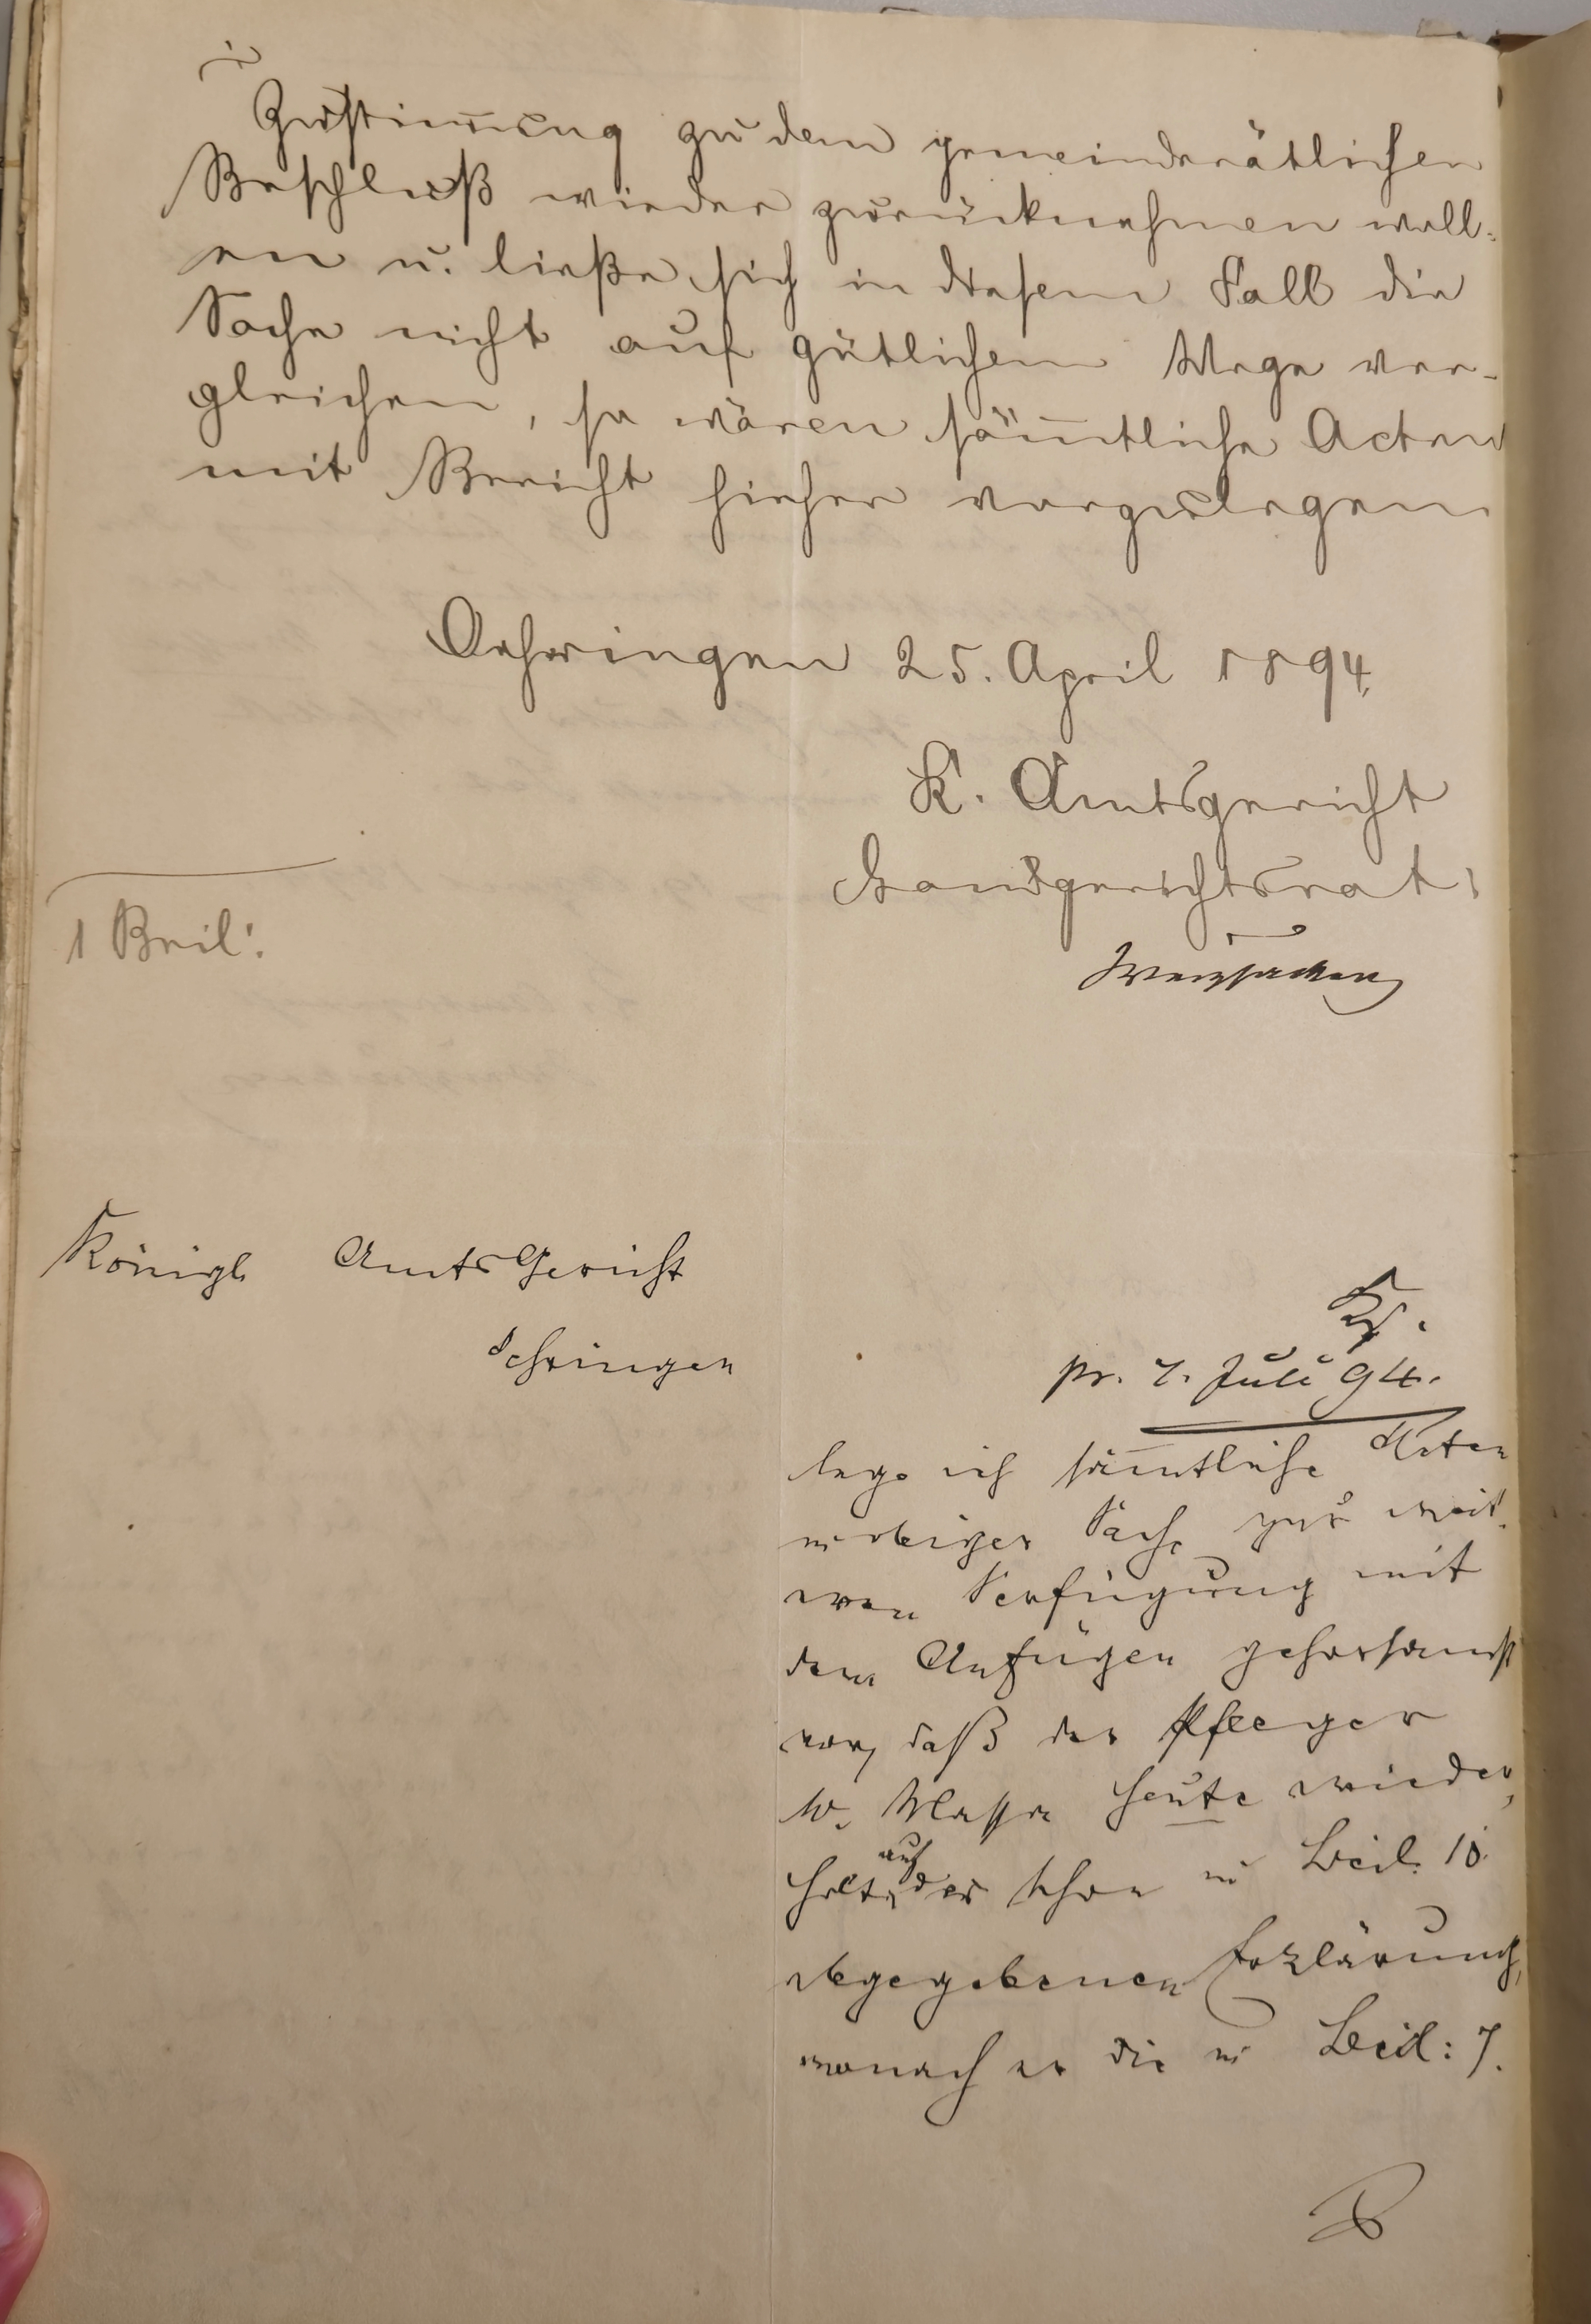 Zustim̅ung zu dem gemeinderätlichen
Beschluß wieder zurücknehmen woll-
en u. ließe sich in diesem Fall die
Sache nicht auf gütlichem Wege ver-
gleichen, so wären säm̅tliche Acten
mit Bericht hieher vorzulegen
Oehringen 25. April 1894
K. Amtsgericht
Landgerichtsrat:
1 Beil:
Königl Amts Gericht
Oehringen
pr. 7. Juli 94.
lege ich säm̅tliche Akten
in obiger Sache zur weit.
eren Verfügung mit
dem Anfügen gehorsamst
vor, daß der Pfleger
W. heute wieder,
holt auf der schon in Beil. 10
abgegebenen Erklärung,
wonach er die in Beil: 7.